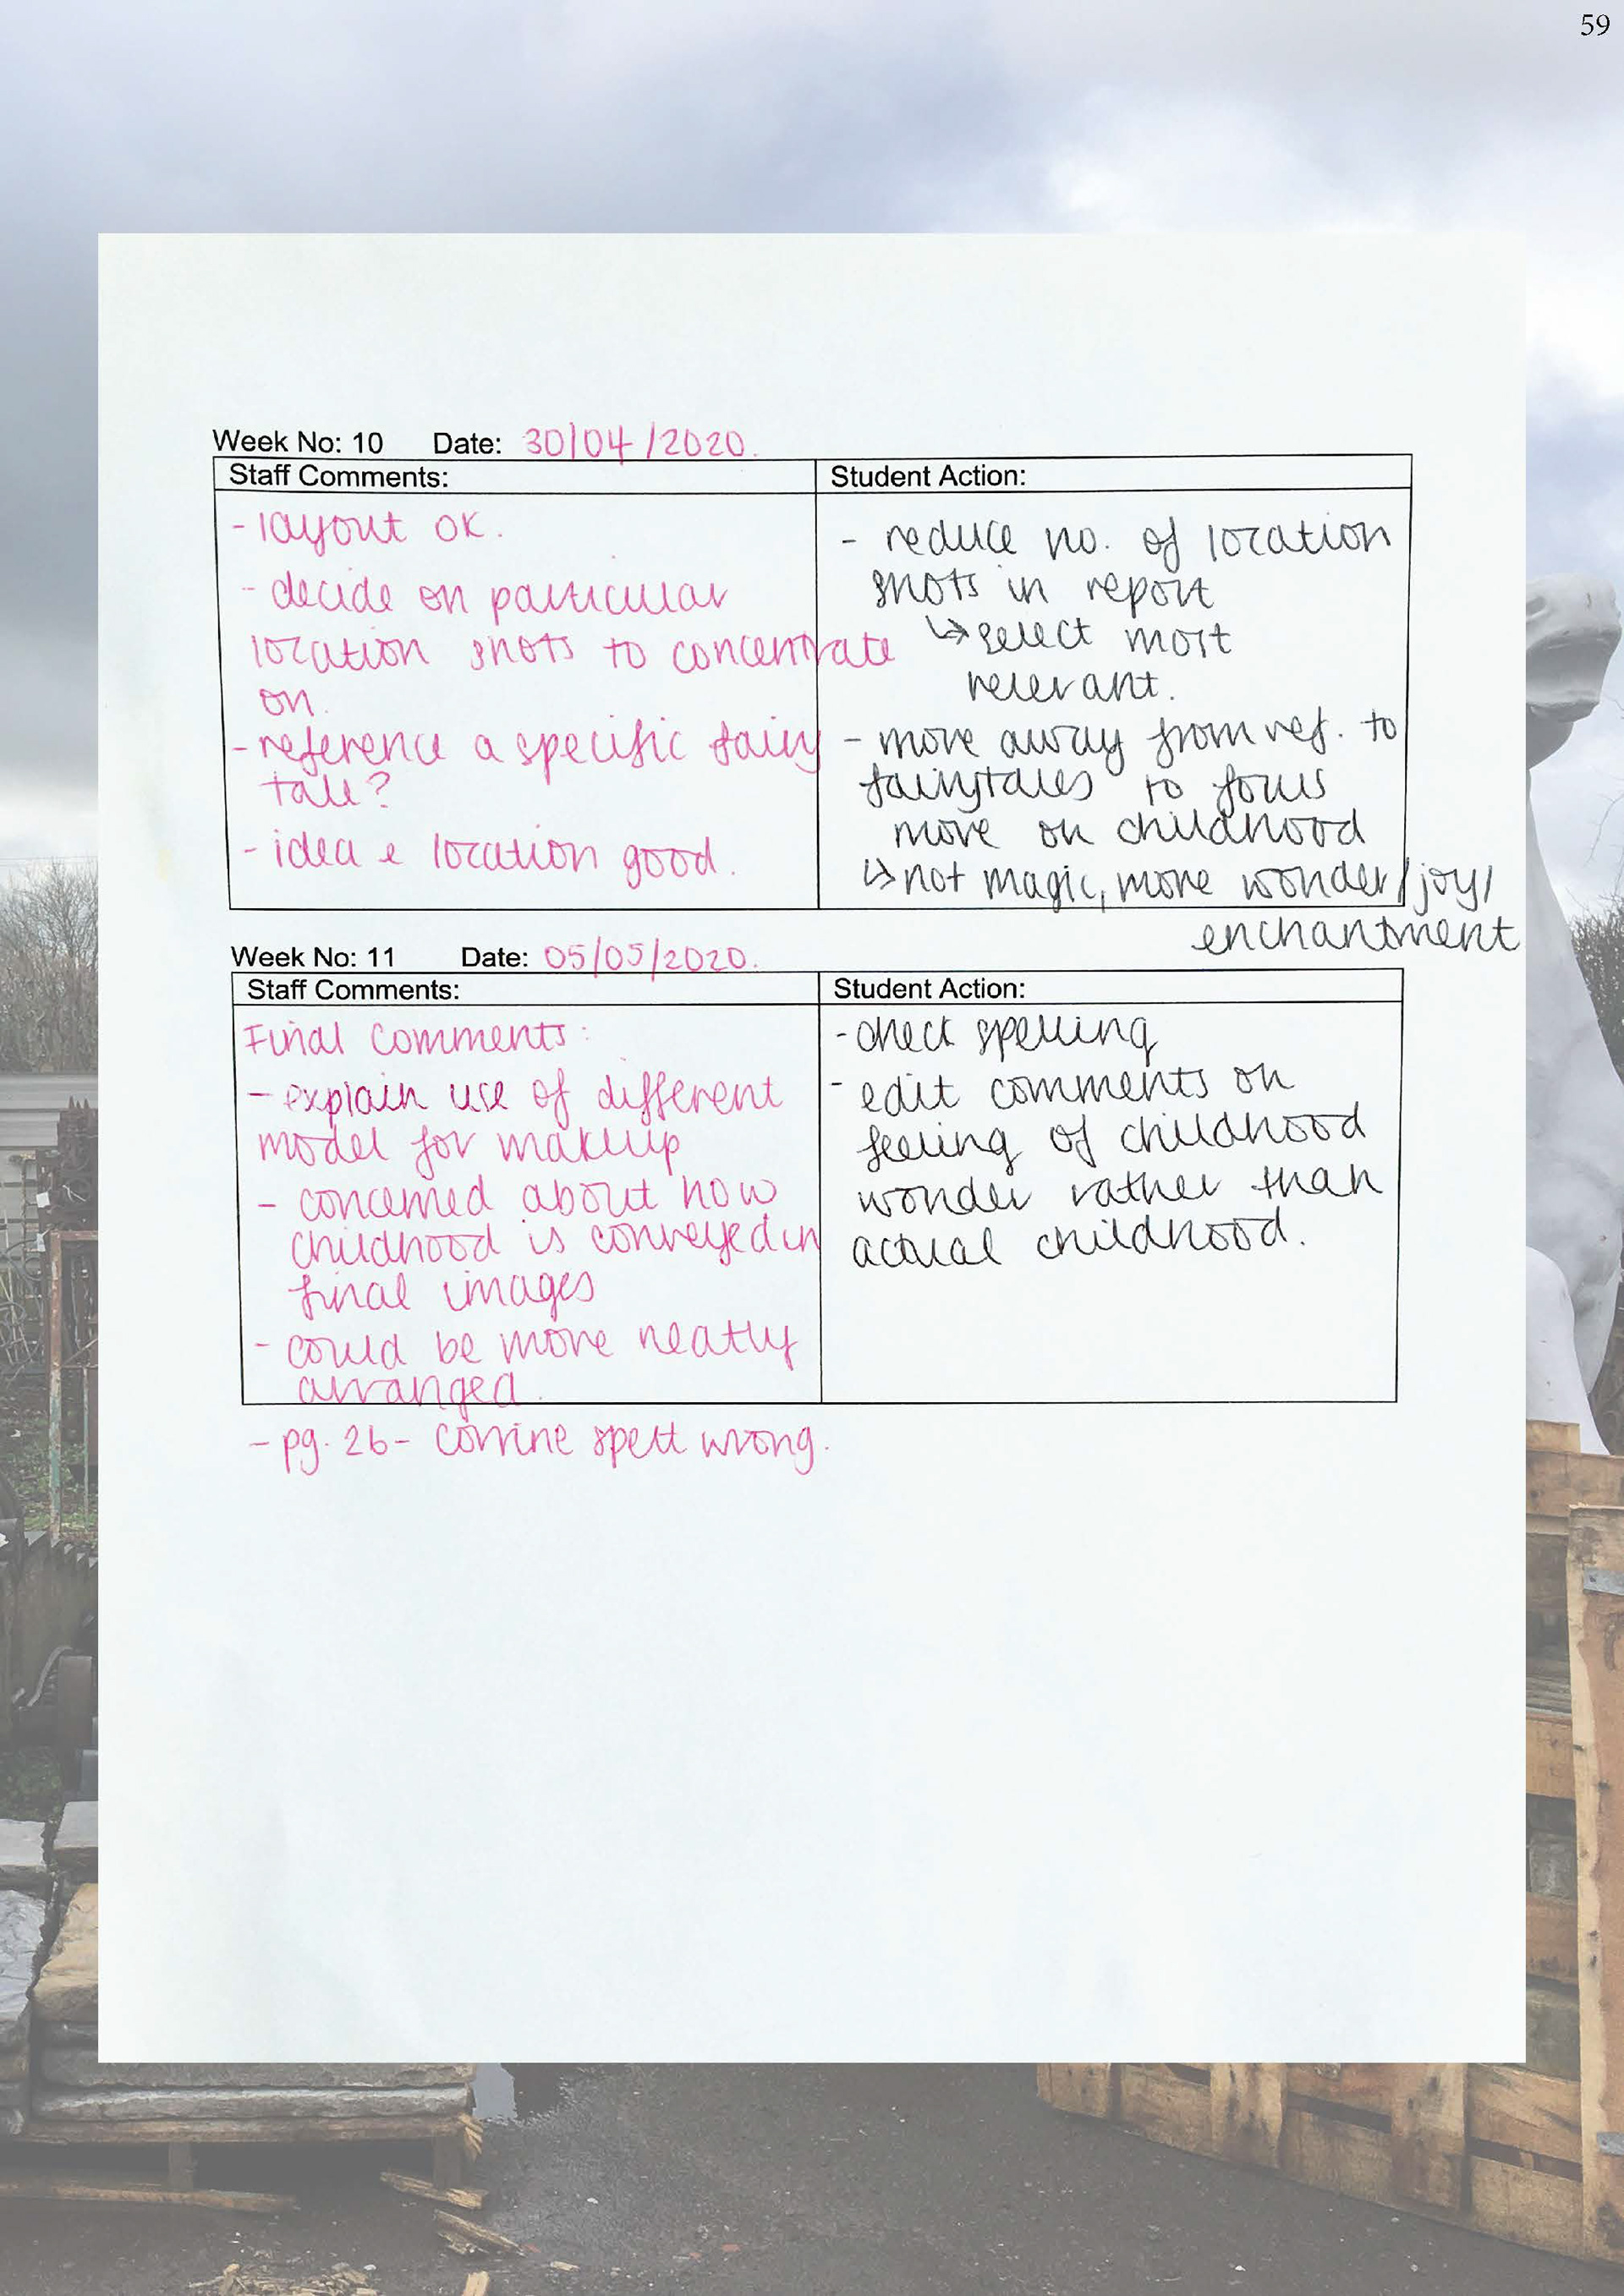 59
Week No: 10 Date: 30/04/2020.
Staff Comments:
- layout ok.
- decide on particular
location shots to concentrate
on.
- reference a specific fairy
tale?
- idea & location good.
Student Action:
- reduce no. of location
shots in report
↳ select most
relevant.
- move away from ref. to
fairytales to focus
more on childhood
↳ not magic, more wonder/joy/
enchantment
Week No: 11 Date: 05/05/2020.
Staff Comments:
Final Comments:
- explain use of different
model for makeup
- concerned about how
childhood is conveyed in
final images
- could be more neatly
arranged.
- pg. 26 - corrine spelt wrong.
Student Action:
- check spelling
- edit comments on
feeling of childhood
wonder rather than
actual childhood.